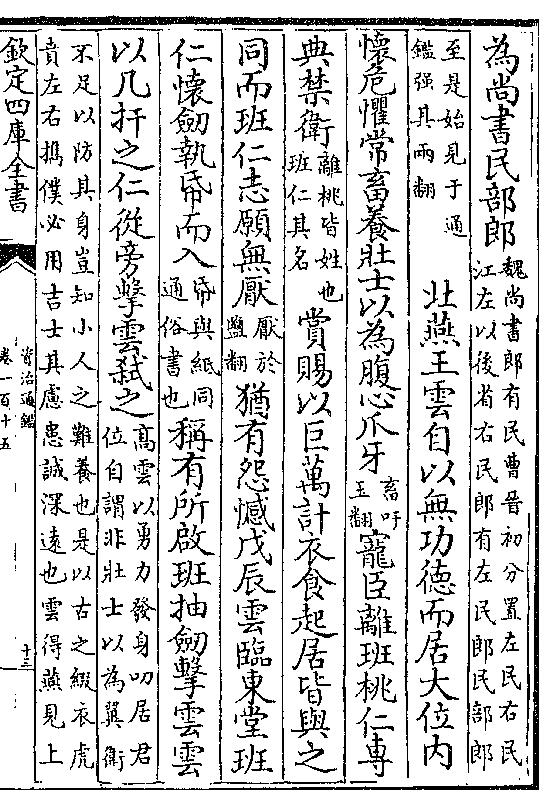 為尚書民部郎魏尚書郎有民曹晉初分置左民右民江左以後省右民郎有左民郎民部郎
至是始見于通鑑强其兩翻北燕王雲自以無功德而居大位内
懷危懼常畜養壯士以為腹心爪牙畜吁玉翻寵臣離班桃仁專
典禁衛離桃皆姓也班仁其名賞賜以巨萬計衣食起居皆與之
同而班仁志願無厭厭於鹽翻猶有怨憾戊辰雲臨東堂班
仁懷劒執帋而入帋與紙同通俗書也稱有所啟班抽劒擊雲雲
以几扞之仁從旁擊雲弑之高雲以勇力發身叨居君位自謂非壯士以為翼衛
不足以防其身豈知小人之難養也是以古之綴衣虎賁左右擕僕必用吉士其慮患誠深遠也雲得燕見上
欽定四庫全書
資治通鑑
卷一百十五
十三